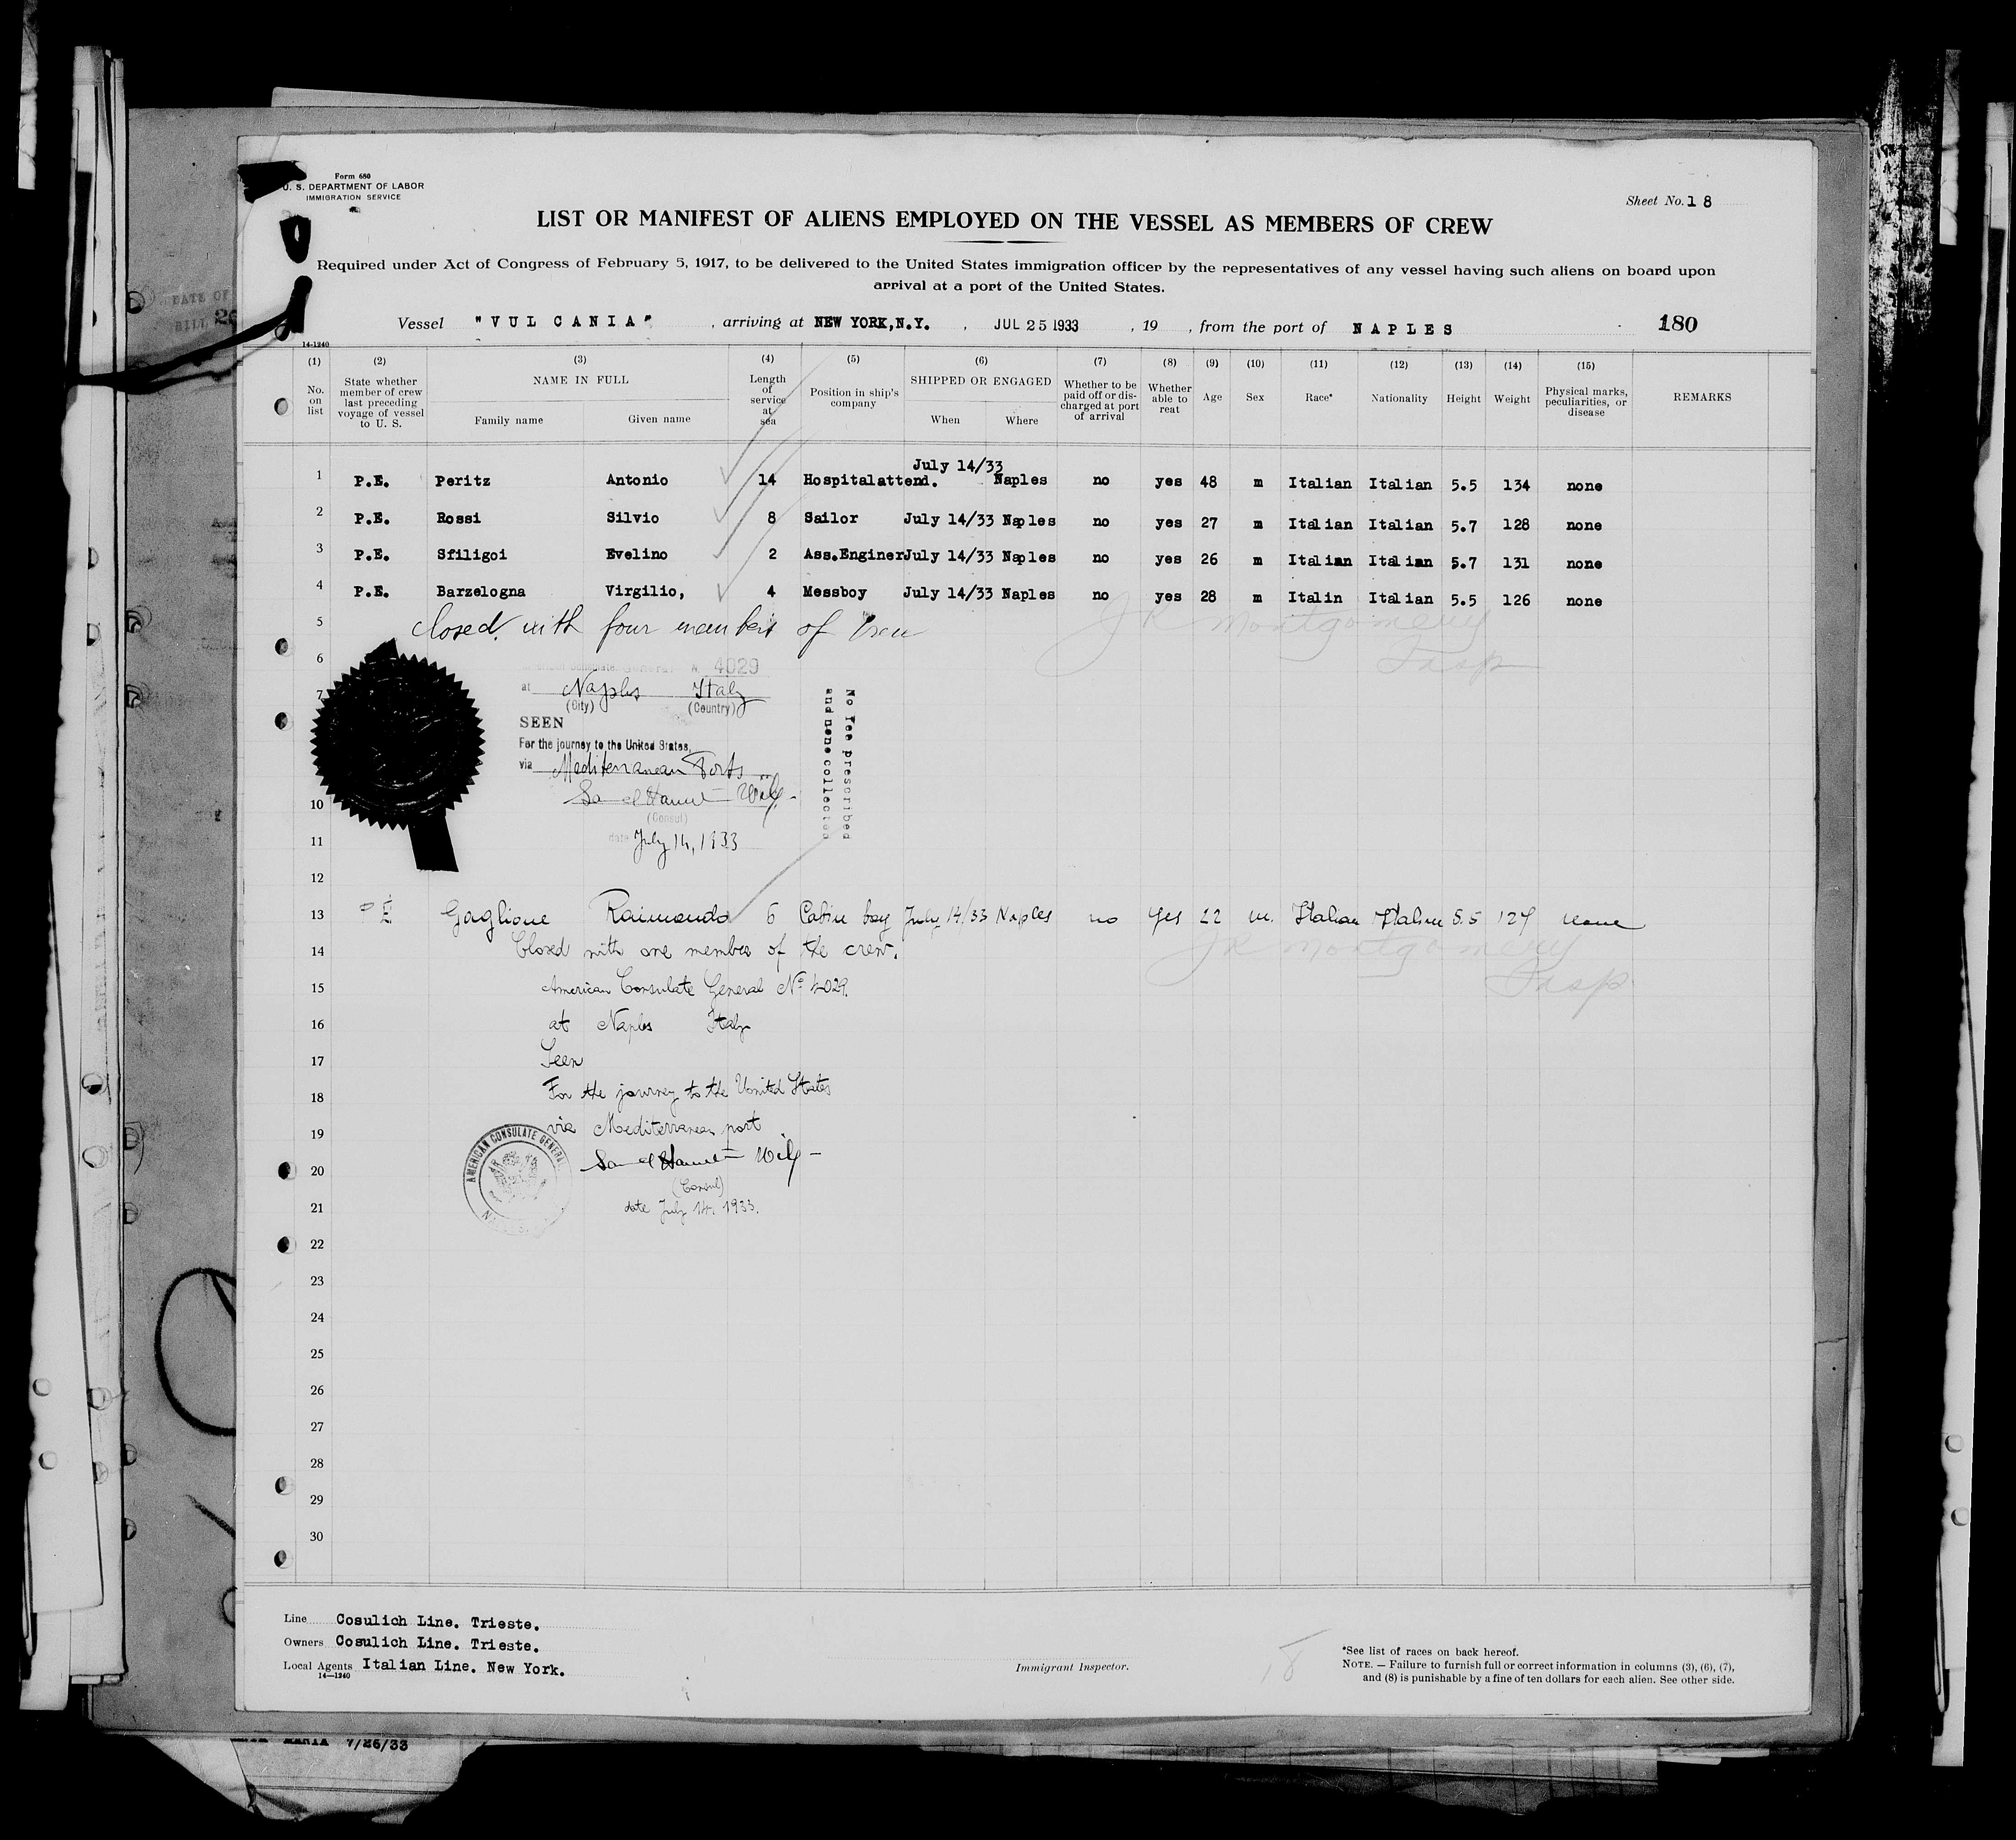 Form 680
U. S. DEPARTMENT OF LABOR
IMMIGRATION SERVICE
Sheet No. 18
LIST OR MANIFEST OF ALIENS EMPLOYED ON THE VESSEL AS MEMBERS OF CREW
Required under Act of Congress of February 5, 1917, to be delivered to the United States immigration officer by the representatives of any vessel having such aliens on board upon
arrival at a port of the United States.
DATE OF
BILL 26
Vessel "VULCANIA", arriving at NEW YORK, N.Y., JUL 25 1933, 19 , from the port of NAPLES 180
14-1240
(1) (2) (3) (4) (5) (6) (7) (8) (9) (10) (11) (12) (13) (14) (15)
No. on list
State whether member of crew last preceding voyage of vessel to U. S.
NAME IN FULL
Family name Given name
Length of service at sea
Position in ship's company
SHIPPED OR ENGAGED
When Where
Whether to be paid off or discharged at port of arrival
Whether able to reat
Age Sex Race* Nationality Height Weight
Physical marks, peculiarities, or disease
REMARKS
1 P.E. Peritz Antonio 14 Hospitalattend. July 14/33 Naples no yes 48 m Italian Italian 5.5 134 none
2 P.E. Rossi Silvio 8 Sailor July 14/33 Naples no yes 27 m Italian Italian 5.7 128 none
3 P.E. Sfiligoi Evelino 2 Ass.Enginer July 14/33 Naples no yes 26 m Italian Italian 5.7 131 none
4 P.E. Barzelogna Virgilio, 4 Messboy July 14/33 Naples no yes 28 m Italin Italian 5.5 126 none
5 closed with four members of crew J R Montgomery
6 General N. 4029 Insp
7 at Naples Italy
(City) (Country)
SEEN
For the journey to the United States,
via Mediterranean Ports
10
(Consul)
11 date July 14, 1933
No fee prescribed
and none collected
12
13 P E Gaglione Raimondo 6 Cabin boy July 14/33 Naples no yes 22 m. Italian Italian 5.5 127 none
14 Closed with one member of the crew. J R Montgomery
15 American Consulate General No 4029. Insp
16 at Naples Italy
17 Seen
18 For the journey to the United States
19 via Mediterranean port
AMERICAN CONSULATE GENERAL
20
(Consul)
21 date July 14. 1933.
22
23
24
25
26
27
28
29
30
Line Cosulich Line. Trieste.
Owners Cosulich Line. Trieste.
Local Agents Italian Line. New York.
14-1240
Immigrant Inspector.
18
*See list of races on back hereof.
NOTE. — Failure to furnish full or correct information in columns (3), (6), (7),
and (8) is punishable by a fine of ten dollars for each alien. See other side.
MARIA 7/26/33